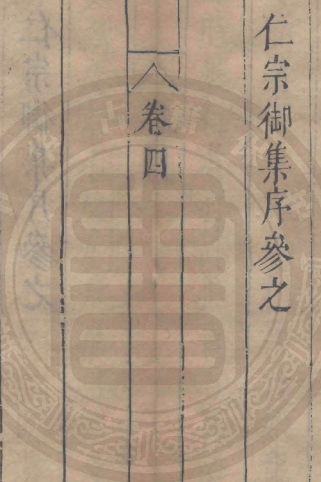 仁宗御集序參之
卷四